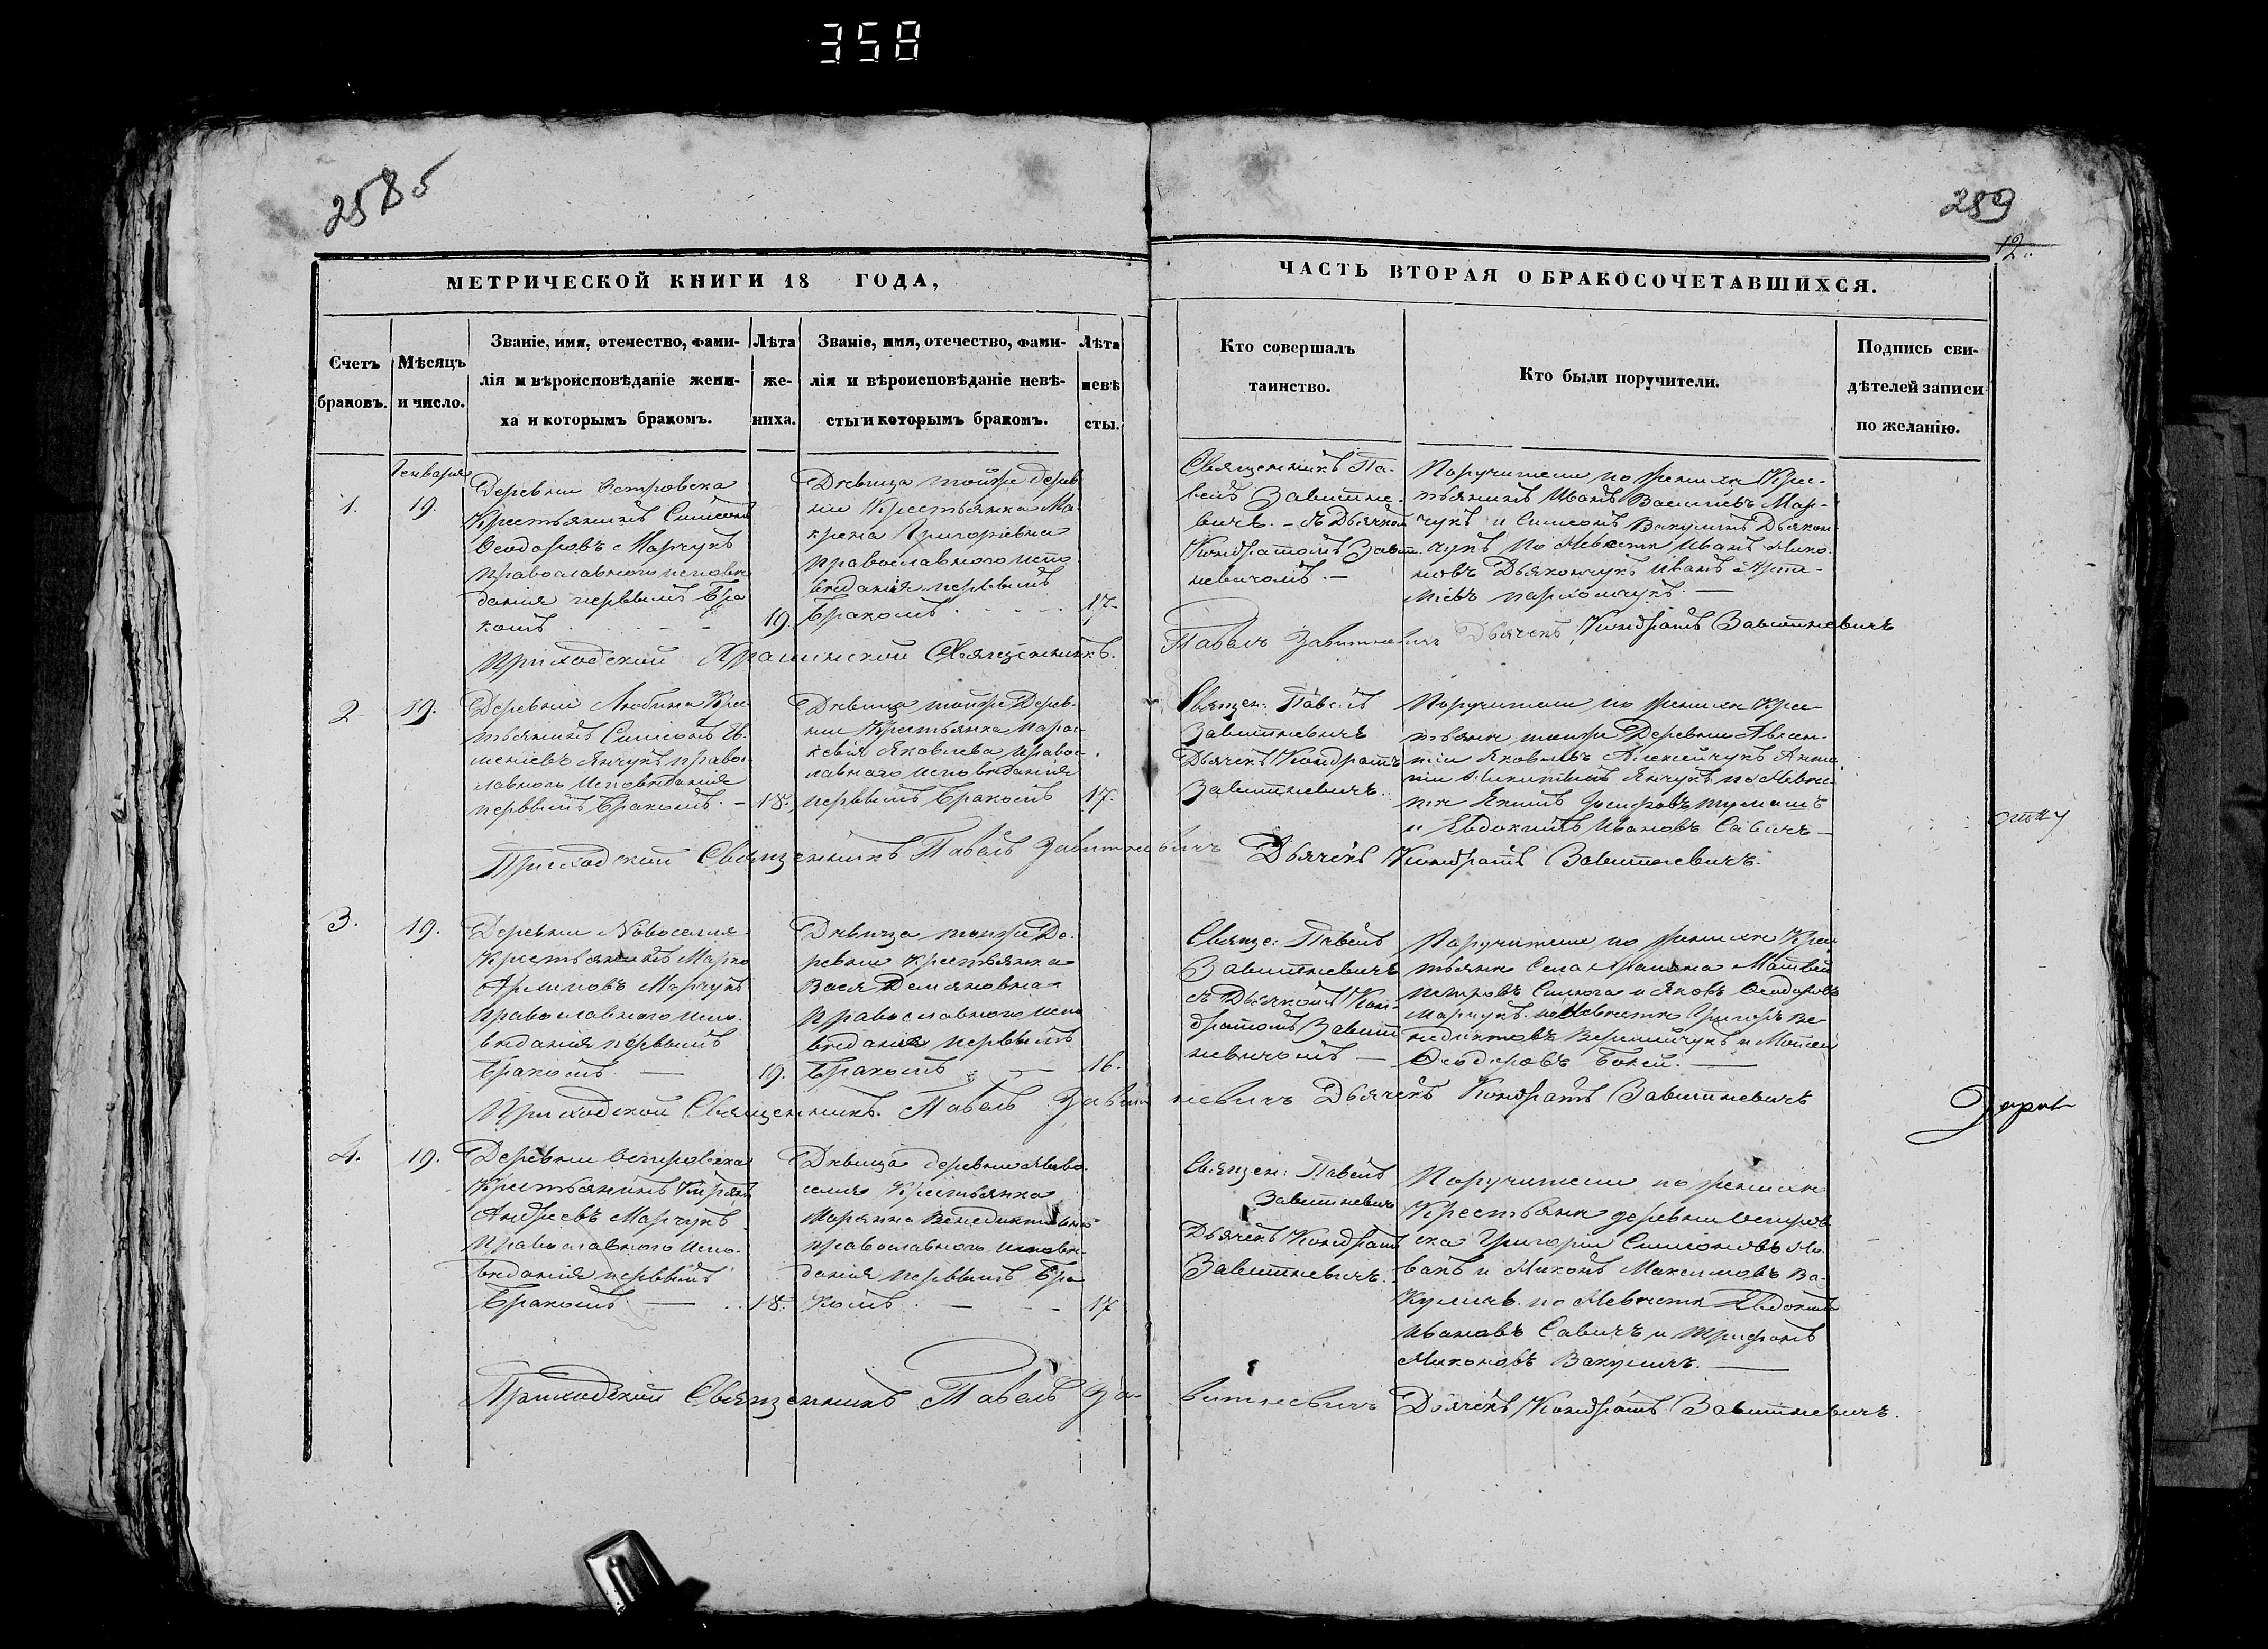 358
2585
289
12.
МЕТРИЧЕСКОЙ КНИГИ 18 ГОДА,
ЧАСТЬ ВТОРАЯ О БРАКОСОЧЕТАВШИХСЯ.
Счетъ
браковъ.
Мѣсяцъ
и число.
Званіе, имя, отечество, фами-
лія и вѣроисповѣданіе жени-
ха и которымъ бракомъ.
Лѣта
же-
ниха.
Званіе, имя, отечество, фами-
лія и вѣроисповѣданіе невѣ-
сты и которымъ бракомъ.
Лѣта
невѣ
сты.
Кто совершалъ
таинство.
Кто были поручители.
Подпись сви-
дѣтелей записи
по желанію.
Генваря
1.
19.
Деревни Островска
Крестьянинъ Симеонъ
Ѳеодоровъ Марчукъ
православного исповѣ
данія первымъ бра
комъ
19.
Дѣвица тойже дерев
ни Крестьянка Ма
крена Григоріевна
православного испо
вѣданія первымъ
бракомъ
17.
Священникъ Па-
велъ Завитне-
вичъ. - съ Дьячком
Кондратомъ Завит-
невичомъ. -
Поручители по женихѣ Кре-
стьянинъ Иванъ Васильевъ Мар-
чукъ и Симеонъ Вакуличъ Дьякон-
чукъ по невѣстѣ Иванъ Мико-
новъ Дьякончукъ Иванъ
пархомчукъ. -
Приходской Храпинской Священникъ.
Павелъ Завитневичъ Дьячекъ Кондратъ Завитневичъ
2
19.
Деревни Любина Крес
тьянинъ Симеонъ Ев-
меніевъ Янчукъ право-
славного исповѣданія
первымъ бракомъ. -
18.
Дѣвица тойже Дерев-
ни Крестьянка Парас-
кевія Яковлева правос-
лавного исповѣданія
первымъ бракомъ
17.
Священ: Павелъ
Завитневичъ
Дьячекъ Кондратъ
Завитневичъ.
Поручители по женихѣ Крес-
тьяне тойже Деревни Авксен-
тій Яковлевъ Алексейчукъ
Никитинъ Янчукъ по невѣс-
тѣ Якимъ Іосифовъ
и Евдокимъ Ивановъ Савичъ -
Приходской Священникъ Павелъ Завитневичъ Дьячекъ Кондратъ Завитневичъ.
3.
19.
Деревни Новоселія
Крестьянинъ Марко
Марчукъ
православного испо-
вѣданія первымъ
бракомъ -
19.
Дѣвица тойже Де-
ревни крестьянка
Вася Демяновна
православного испо
вѣданія первымъ
бракомъ
16.
Свяще: Павелъ
Завитневичъ
съ Дьячкомъ Кон-
дратомъ Завит
невичомъ -
Поручители по женихѣ Крес
тьяне Села Храпина Матвей
петровъ и Яковъ Ѳеодоровъ
Марчукъ. по невѣстѣ Григоръ Ве-
недиктовъ Веремейчукъ и
Ѳеодоровъ
Приходской Священникъ. Павелъ Завитневичъ Дьячекъ Кондратъ Завитневичъ
4.
19.
Деревни Островска
Крестьянинъ
Андреевъ Марчукъ
православного испо-
вѣданія первымъ
бракомъ -
18.
Дѣвица деревни Ново-
селія Крестьянка
Марянна Венедиктовна
православного исповѣ-
данія первымъ бра
комъ. -
17
Священ: Павелъ
Завитневичъ
Дьячекъ Кондратъ
Завитневичъ.
Поручители по женихѣ
Крестьяне деревни Остров
ска Григорій Симеоновъ Но-
вакъ и Миконъ Максимовъ Ва-
куличъ. по невѣстѣ Евдокимъ
Ивановъ Савичъ и Трифонъ
Миконовъ Вакуличъ. -
Приходской Священникъ Павелъ Завитневичъ Дьячекъ Кондратъ Завитневичъ.